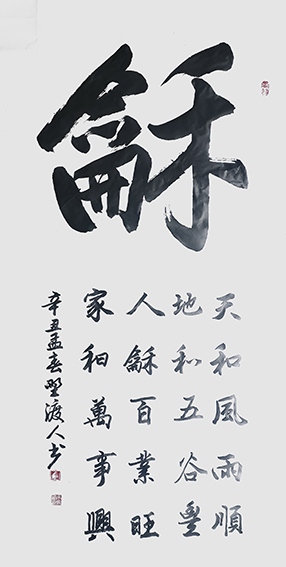 龢
天和風雨順
地和五谷豐
人龢百業旺
家和萬事興
辛丑孟春野渡人书